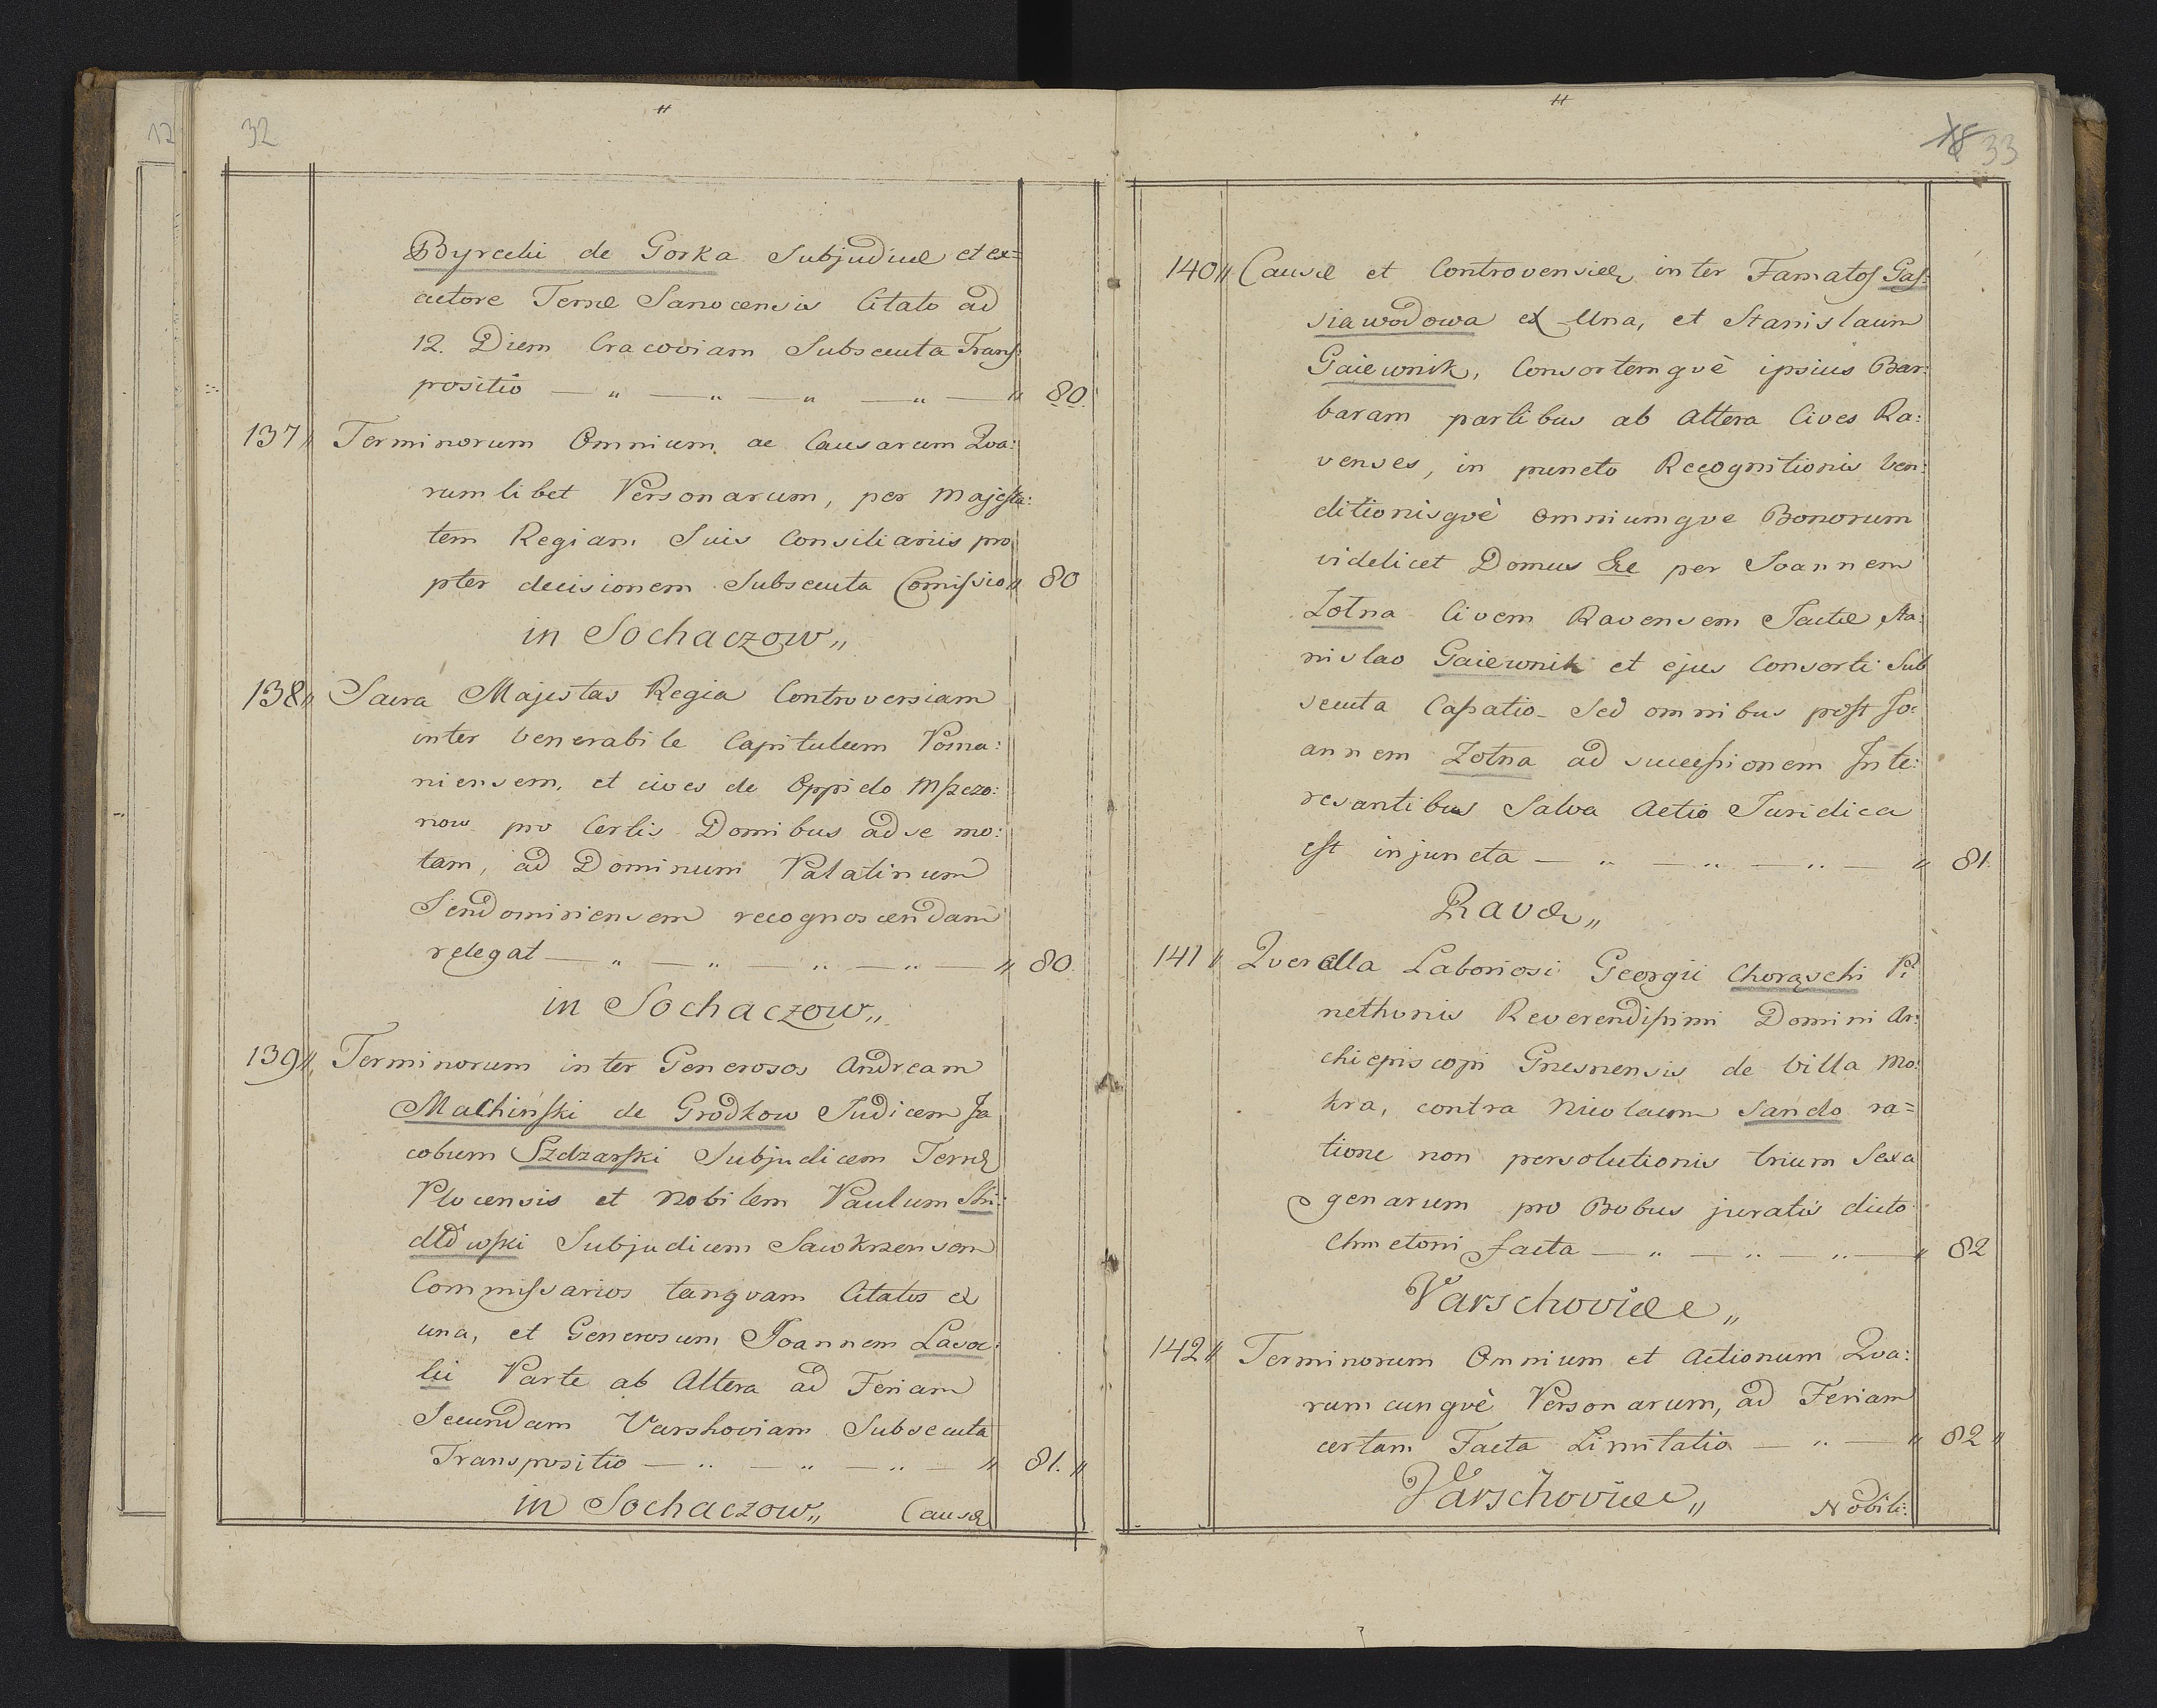 32
Byrcelii de Gorka Subjudicæ et ex=
actore Terræ Sanocensis Citato ad
12. Diem Cracoviam Subsecuta Trans:
positio — " — " — " — " — " 80.
137 " Terminorum Omnium, ac Causarum Qva:
rumlibet Personarum, per Majesta:
tem Regiam Suis Consiliariis pro
pter decisionem Subsecuta Comissio " 80
in Sochaczow "
138 " Sacra Majestas Regia Controversiam
inter Venerabile Capitulum Posna:
niensem, et cives de Oppido Mszczo:
now pro Certis Domibus ad se mo:
tam, ad Dominum Palatinum
Sendomiriensem recognoscendam
relegat — " — " — " — " — " 80.
in Sochaczow "
139 " Terminorum inter Generosos Andream
Malchinski de Grodkow Judicem Ja
cobum Szdzarski Subjudicem Terræ
Plocensis et Nobilem Paulum Shi:
dłowski Subjudicem Sawkrzensem
Commissarios tanqvam Citatos ex
una, et Generosum Joannem Lasoc:
lii Parte ab Altera ad Feriam
Secundam Varshoviam Subsecuta
Transpositio — " — " — " — " 81. "
in Sochaczow " Causæ
18 33
140 " Causæ et Controversiæ inter Famatos Gas:
siawodowa ex Una, et Stanislaum
Gaiewnik, Consortemqvè ipsius Bar:
baram partibus ab altera Cives Ra:
venses, in puncto Recognitionis Ven:
ditionisqvè omniumqve Bonorum
videlicet Domus &c per Joannem
Zotna Civem Ravensem Factæ, Sta:
nislao Gaiewnik et ejus Consorti Sub
secuta Cassatio. Sed omnibus post Jo:
annem Zotna ad successionem Inte:
resantibus Salva Actio Juridica
est injuncta — " — " — " — " 81.
Ravæ "
141 " Qverella Laboriosi Georgii Chorąschi
nethonis Reverendissimi Domini Ar:
chiepiscopi Gnesnensis de Villa Mo:
kra, contra Nicolaum Sando ra=
tione non persolutionis trium Sexa
genarum pro Bobus juratis dicto
Chmetoni facta — " — " — " — " 82
Varschoviæ "
142 " Terminorum Omnium et Actionum Qva:
rumcunqvè Personarum, ad Feriam
certam Facta Limitatio — " — " 82 "
Varschoviæ " Nobili: